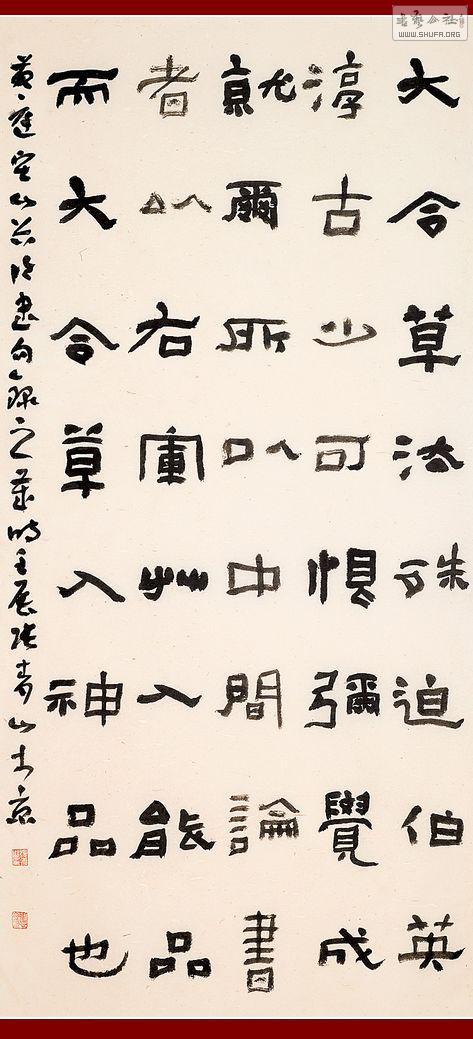 大令草法殊迫伯英
淳古少可恨彌覺成
就爾所以中間論書
者以右軍艸入能品
而大令草入神品也
黄庭堅山谷論書句錄之歲時壬辰張青山于京
书艺公社
WWW.SHUFA.ORG